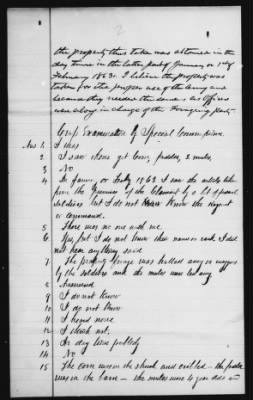 2
the property thus taken was obtained in the
day time in the latter part of January or 1st of
February 1863. I believe the property was
taken for the proper use of the Army and
because they needed the same. as officers
were along in charge of the Foraging Party
Comp Examination by Special Commissioner
Ans 1. I was
2. I saw them get Corn, fodder, 2 mules
3. No
4. In January or Feby 1863 I saw the articles taken
from the premises of the Claimant by a lot of armed
soldiers but I do not know the regiment
or command.
5. There was no one with me
6. Yes, but I do not know their names or rank I did
not hear anything said
7. The property forage was hauled away in waggons
by the soldiers and the mules were led away
8. Answered
9. I do not know
10. I do not know
11. I heard none
12. I think not.
13. In day time publicly
14. No
15. The corn was in the shuck and cribbed – the fodder
was in the barn – the mules were in good order